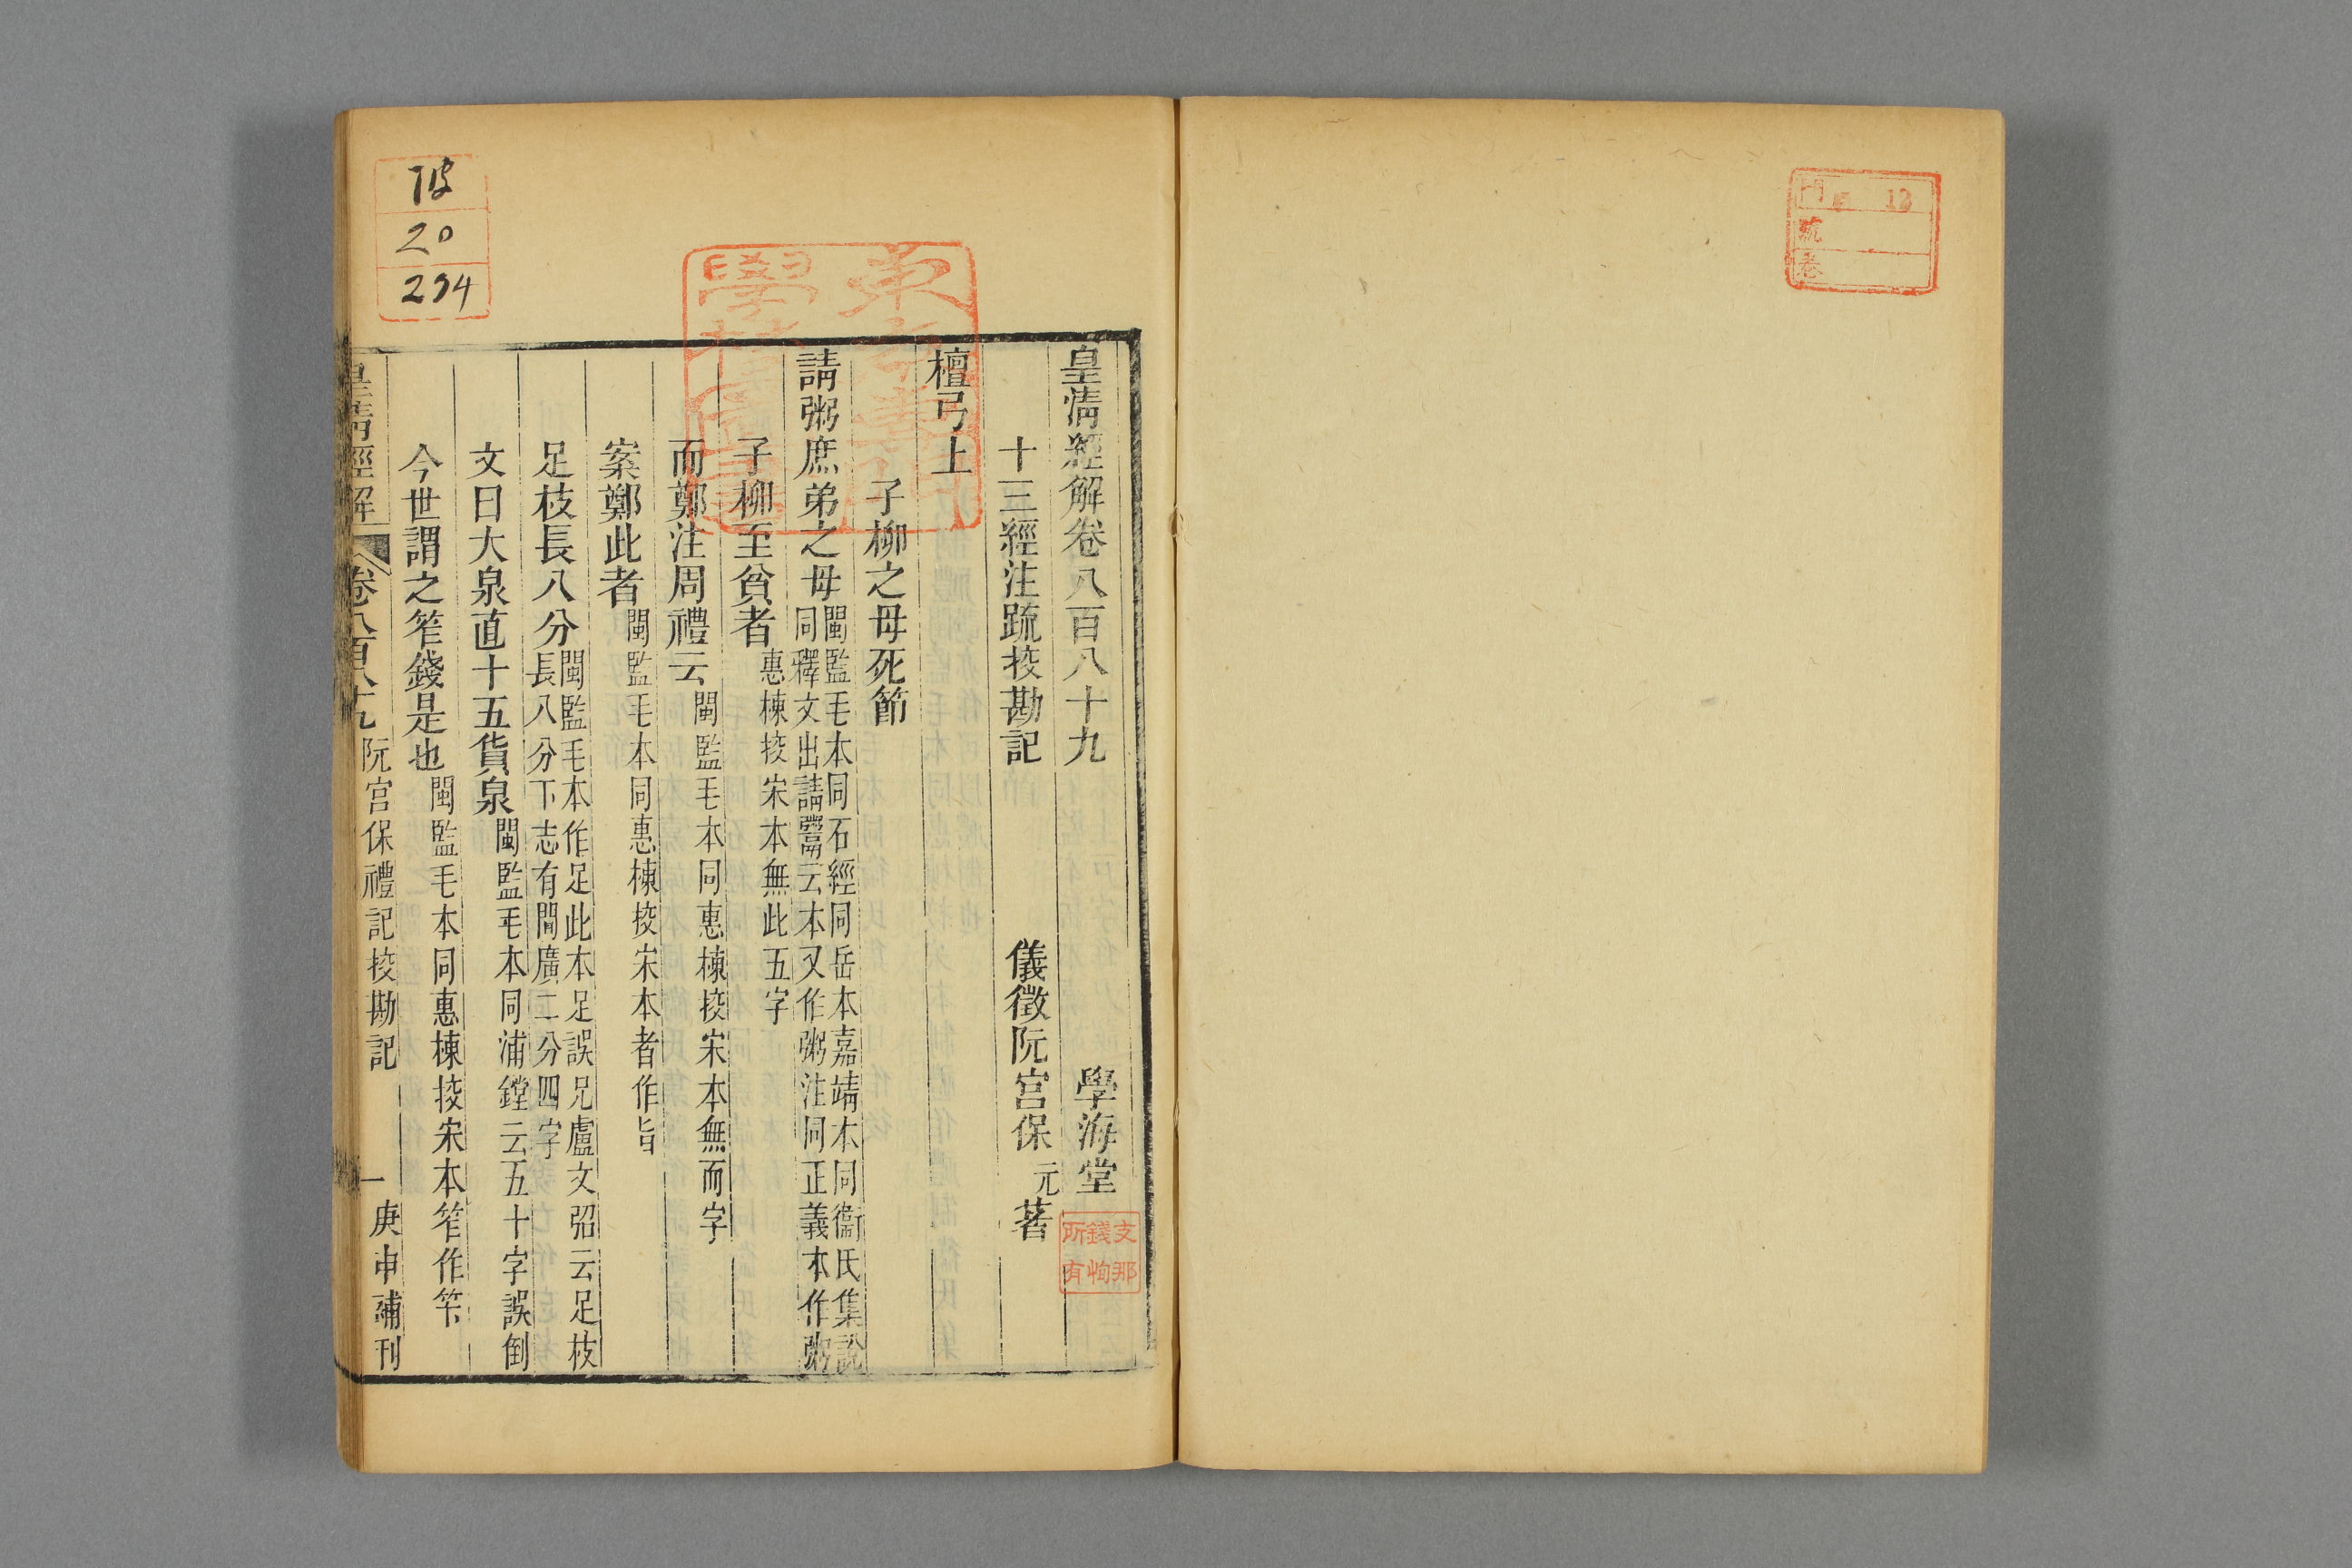 皇清經解卷八百八十九
學海堂
十三經注疏挍勘記
儀徵阮宮保元著
檀弓上
子柳之母死節
請粥庶弟之母閩監毛本同石經同岳本嘉靖本同衞氏集說
同釋文出請鬻云本又作粥注同正義本作粥
子柳至貧者惠棟挍宋本無此五字
而鄭注周禮云閩監毛本同惠棟挍宋本無而字
案鄭此者閩監毛本同惠棟挍宋本者作旨
足枝長八分閩監毛本作足此本足誤兄盧文弨云足枝
長八分下志有間廣二分四字
文曰大泉直十五貨泉閩監毛本同浦鏜云五十字誤倒
今世謂之笮錢是也閩監毛本同惠棟挍宋本笮作筰
皇清經解
卷八百八十九
阮宮保禮記挍勘記
一
庚申補刊
支那
錢恂
所有
20
234
門 12
號
卷